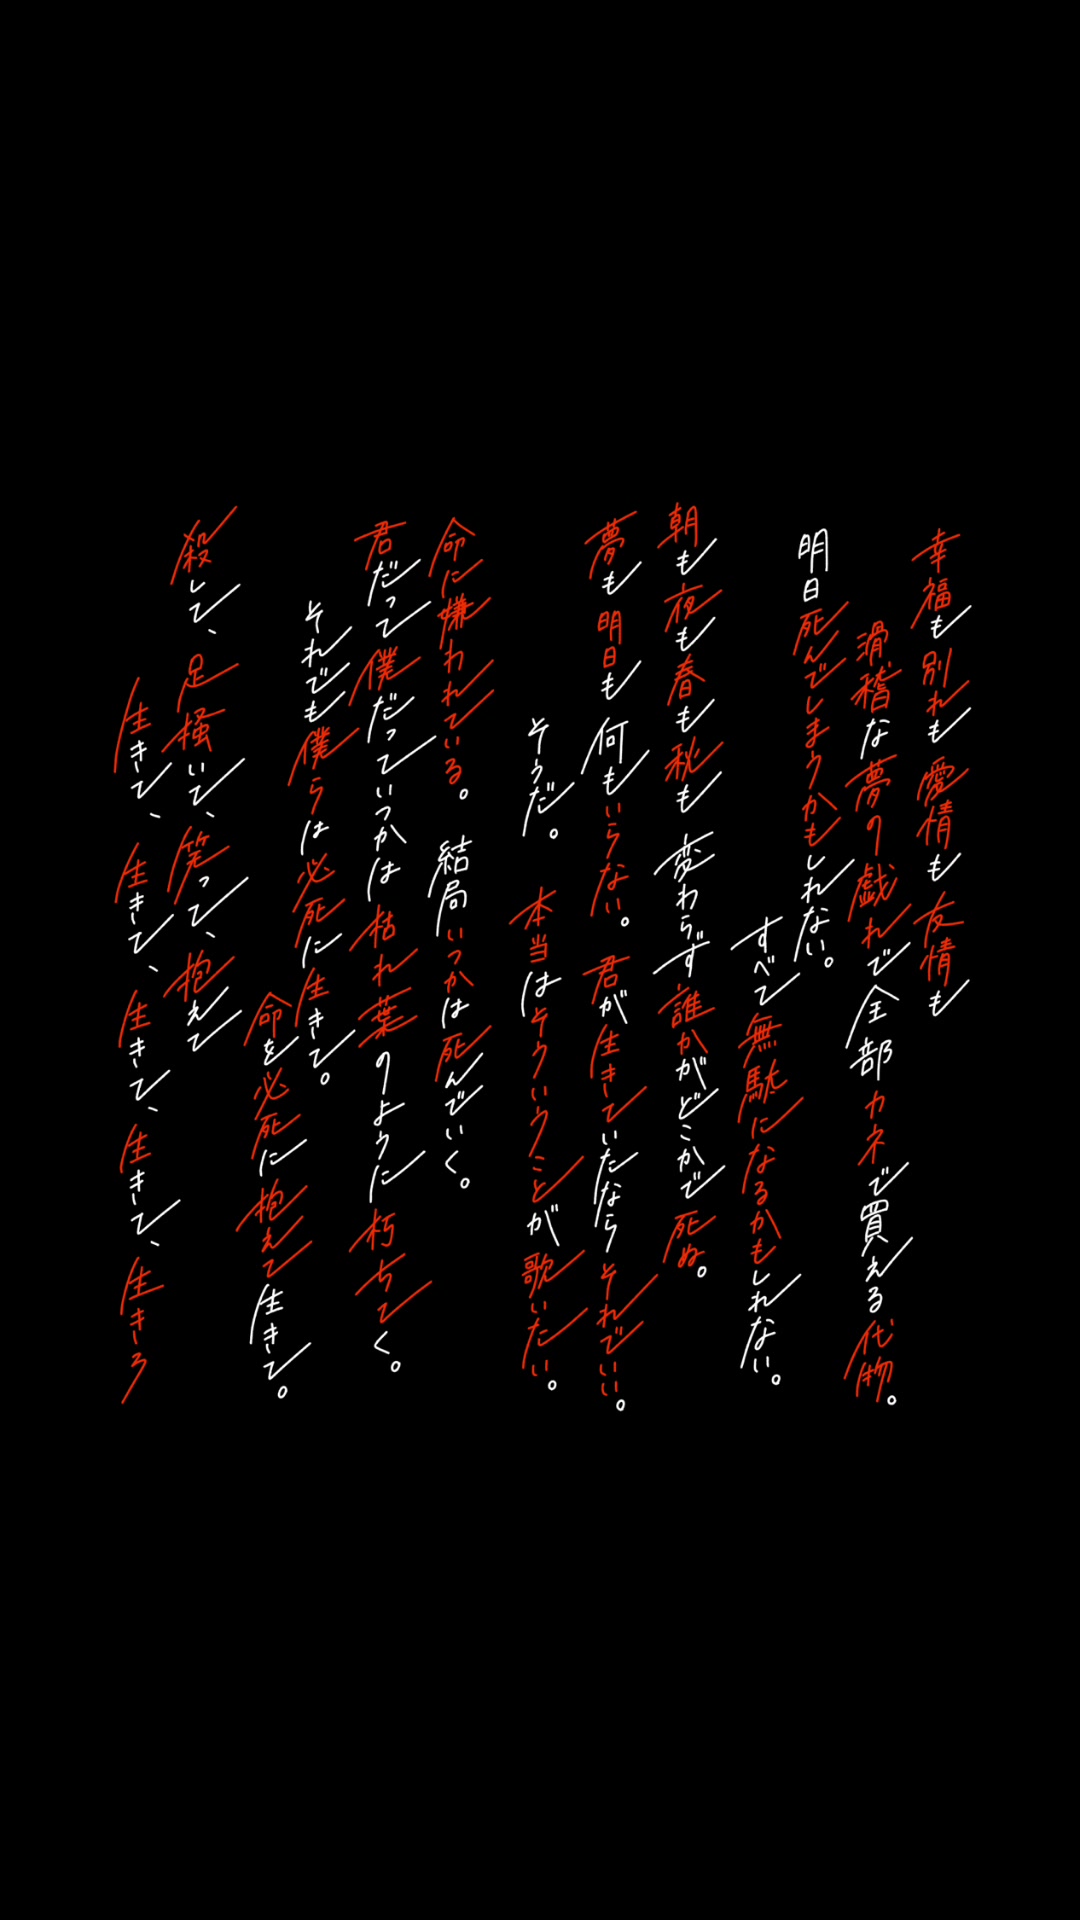 幸福も別れも愛情も友情も
滑稽な夢の戯れで全部カネで買える代物。
明日死んでしまうかもしれない。
すべて無駄になるかもしれない。
朝も夜も春も秋も変わらず誰かがどこかで死ぬ。
夢も明日も何もいらない。君が生きていたならそれでいい。
そうだ。本当はそういうことが歌いたい。
命に嫌われている。結局いつかは死んでいく。
君だって僕だっていつかは枯れ葉のように朽ちてく。
それでも僕らは必死に生きて。
命を必死に抱えて生きて。
殺して、足掻いて、笑って、抱えて
生きて、生きて、生きて、生きて、生きろ